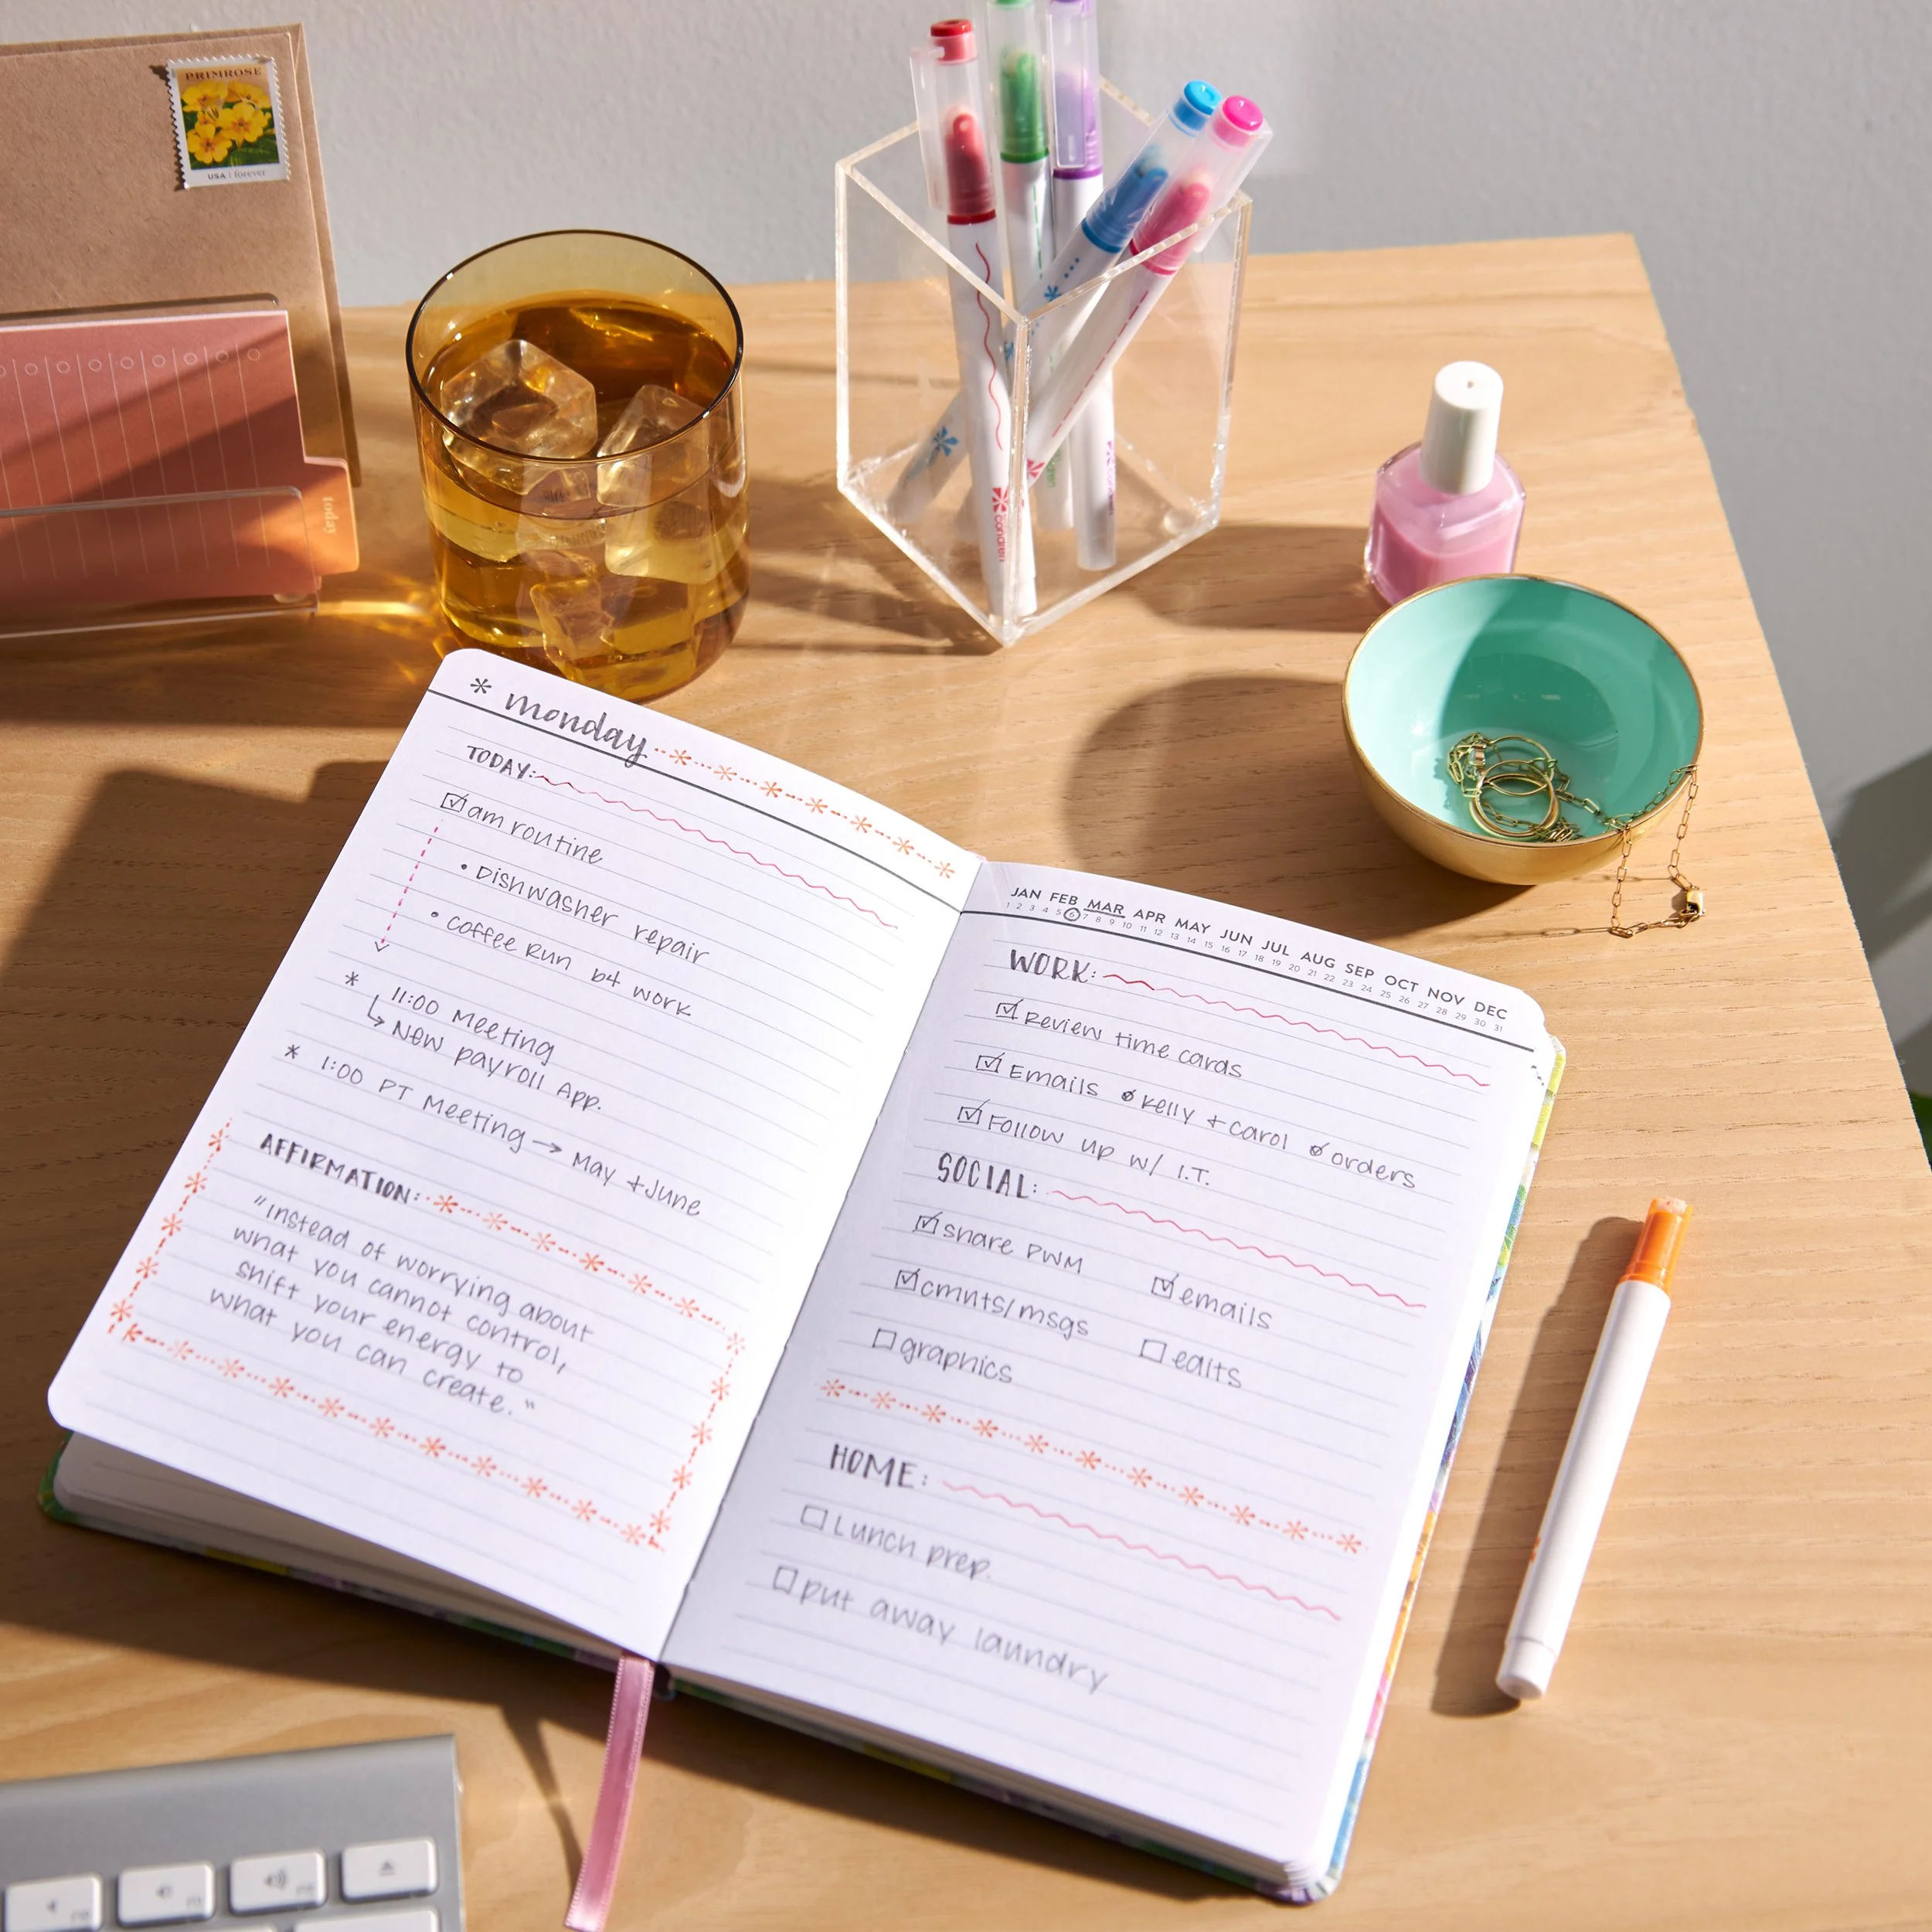 PRIMROSE
USA forever
today
* monday
TODAY:
am routine
• Dishwasher repair
• coffee run b4 work
* 11:00 Meeting
New payroll App.
* 1:00 PT Meeting → May + June
AFFIRMATION:
"instead of worrying about
what you cannot control,
shift your energy to
what you can create."
JAN FEB MAR APR MAY JUN JUL AUG SEP OCT NOV DEC
1 2 3 4 5 6 7 8 9 10 11 12 13 14 15 16 17 18 19 20 21 22 23 24 25 26 27 28 29 30 31
WORK:
Review time cards
Emails Kelly + carol orders
Follow up w/ I.T.
SOCIAL:
share PWM
emails
cmnts/msgs
edits
graphics
HOME:
Lunch prep.
put away laundry
condren